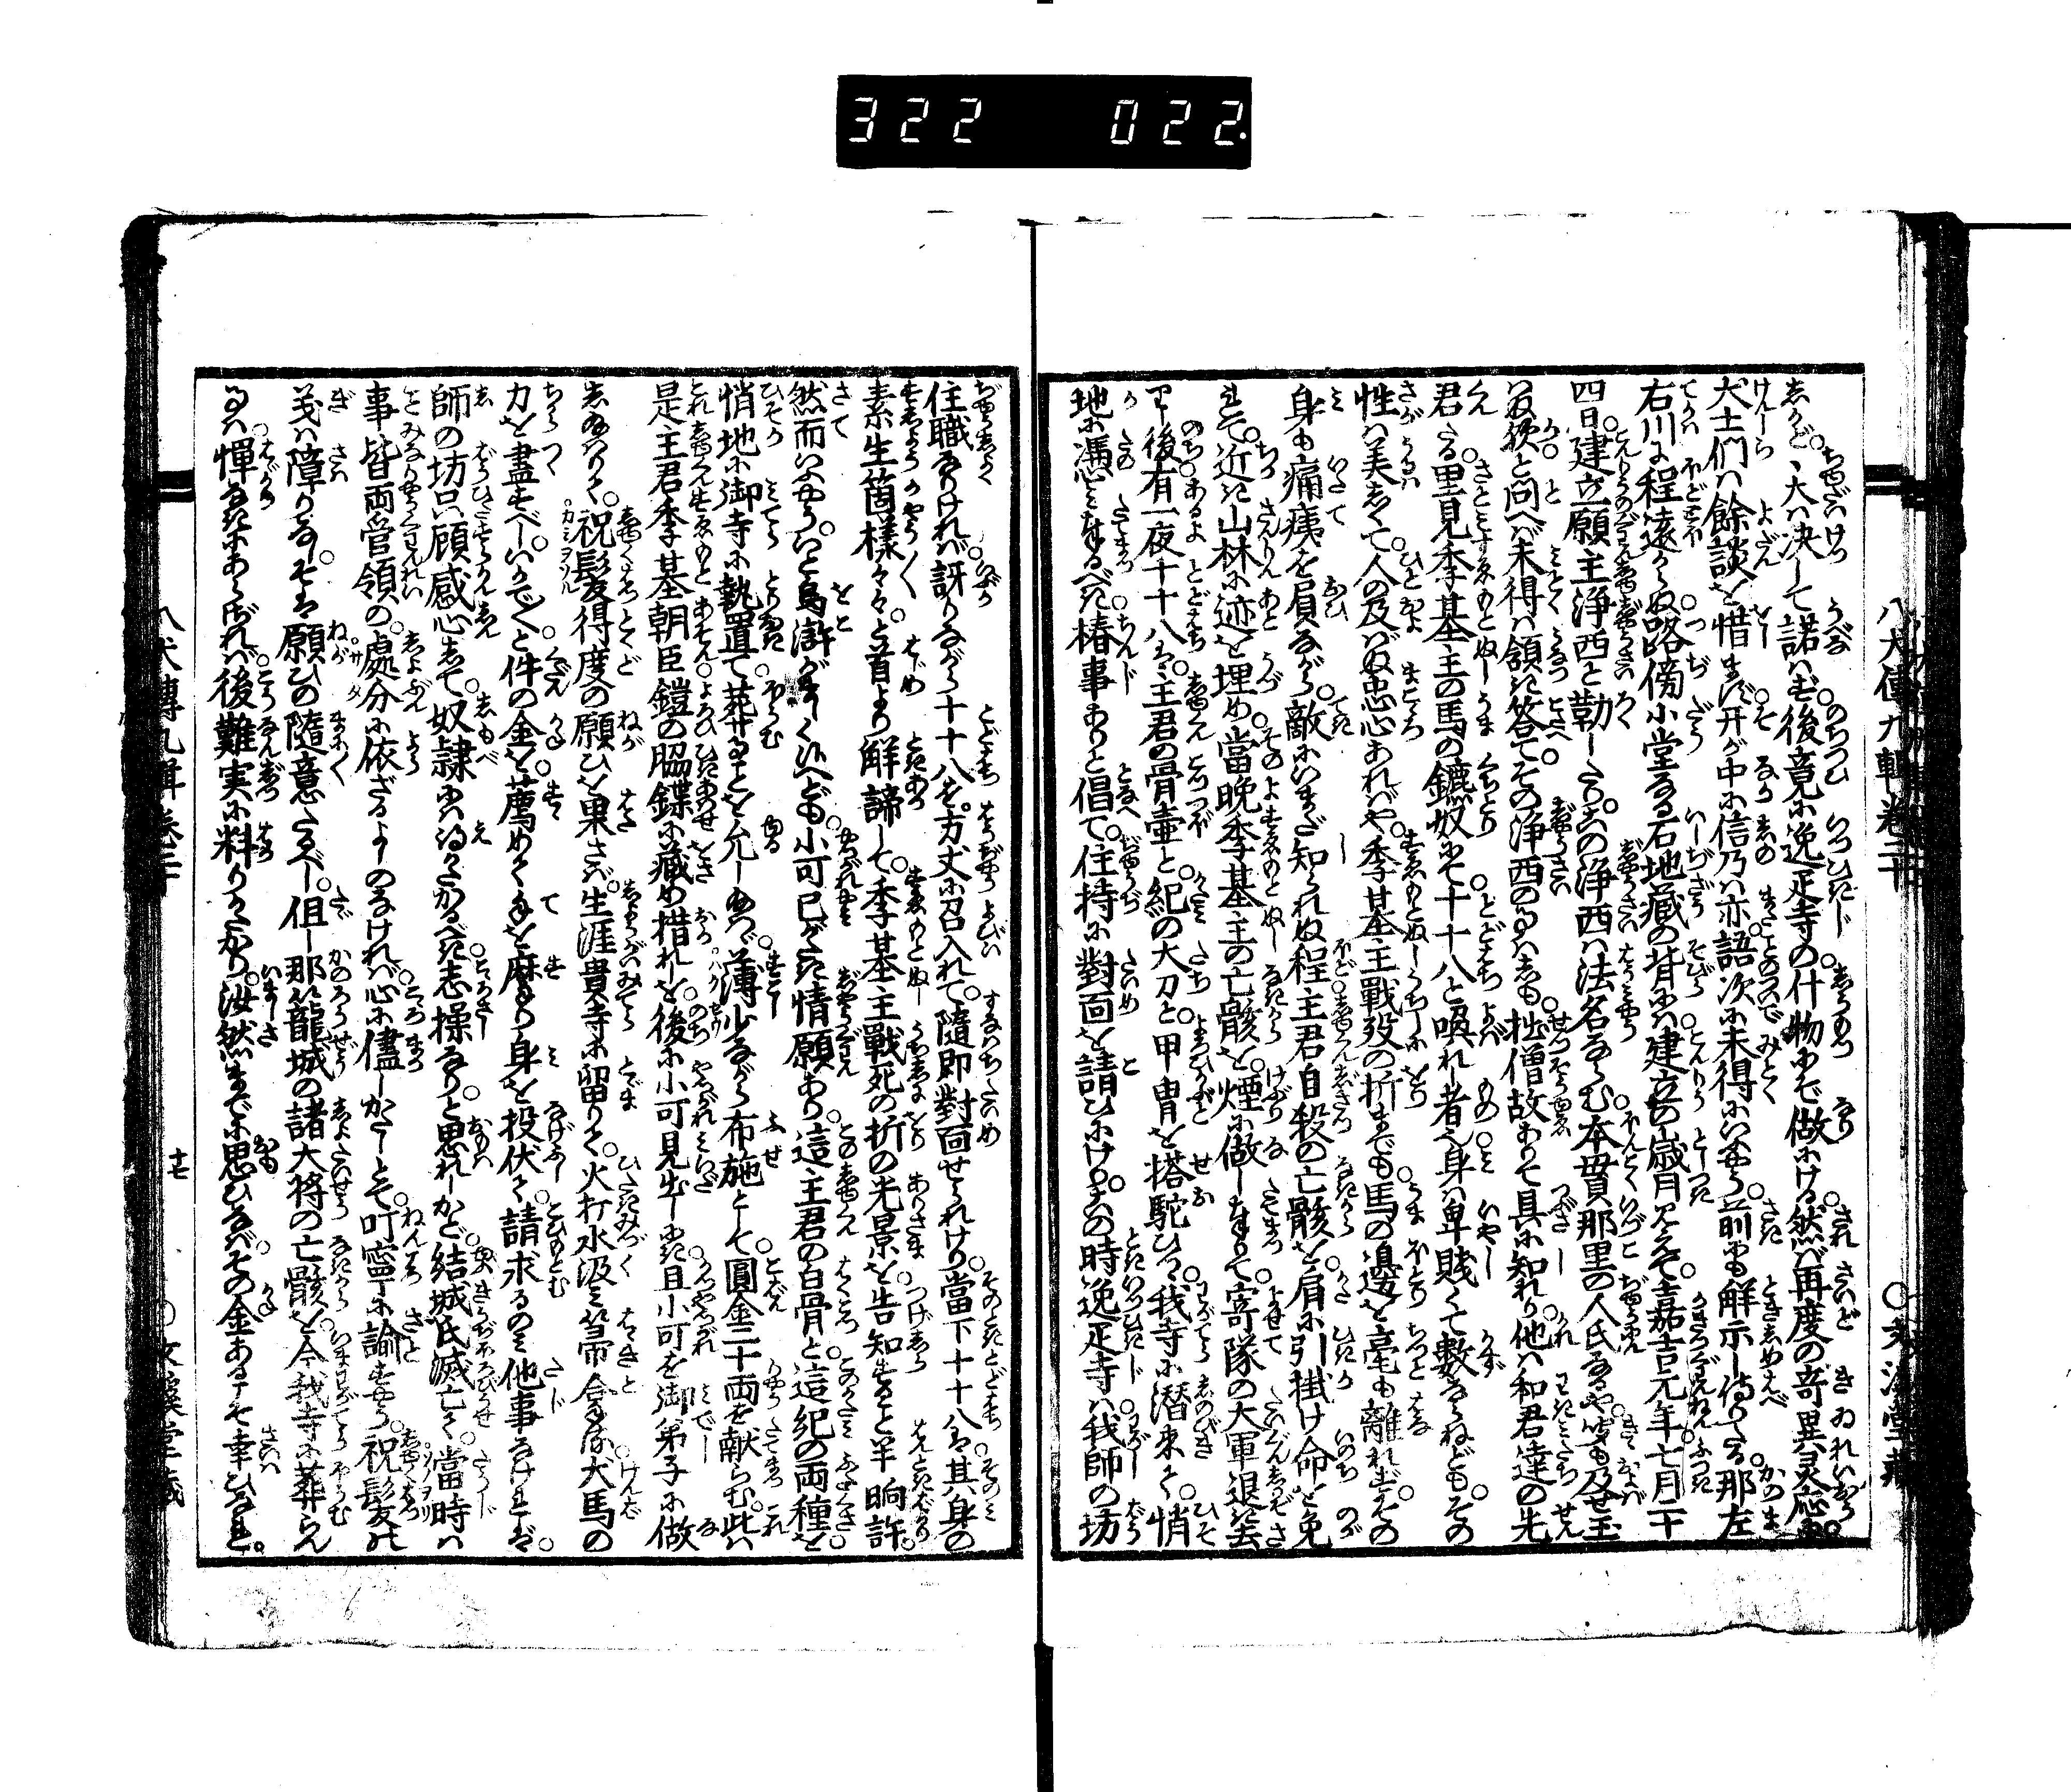 322 022.
八犬傳九輯卷二十
○文渓堂藏
しかど、大は决して諾はず。後竟に逸疋寺の什物にぞ做にける。然ば再度の奇異灵應に。
犬士們は餘談を惜まず。开が中に信乃は亦語次に未得にいふやう。嚮に解示し給りたる。那左
右川に程遠からぬ。路傍小堂なる石地藏の背には。建立の歳月見えて。嘉吉元年七月二十
四日。建立願主淨西と勒したり。この淨西は法名ならむ。本貫那里の人氏なるや。聞も及せ玉
はぬ歟と問へば。未得は頷き答て。その淨西の事はしも。拙僧故ありて具に知れり。他は和君達の先
君たる。里見季基主の馬の鑣奴にて。十十八と喚れし者也。身は卑賤くて數ならねども。その
性は美しくて。人の及ばぬ忠心あればや。季基主戰歿の折までも。馬の邊を毫も離れず。その
身も痛痍を肩ながら。敵にはいまだ知られぬ程。主君自殺の亡骸を。肩に引掛け命を免
れて。近き山林に迹を埋め。當晩季基主の亡骸を。煙に做しまゐらせて。寄隊の大軍退き去
りし後。有一夜十十八は。主君の骨壷と。紀の大刀と。甲冑を搭駝ひつゝ。我寺に潜來て。悄
地に憑みまゐらすべき。椿事ありと倡て。住持に對面を請ひにけり。この時逸疋寺は。我師の坊
住職なりければ。訝りながら十十八を。方丈に召入れて。隨即對面せられけり。當下十十八は。其身の
素生箇樣々々と。首より解諦して。季基主戰死の折の光景を。告知すること半晌許。
然而いふやう。いと烏滸がましく候へども。小可已がたき情願あり。這主君の白骨と。這紀の兩種を。
悄地に御寺に執置て。葬せることを允し給へ。薄少ながら布施として。圓金二十兩を献らむ。此は
是主君季基朝臣。鎧の脇鍱に藏め措れしを。後に小可見出しにき。且小可を御弟子に做
し給はりて。祝髮得度の願ひを果さば。生涯貴寺に留りて。火打水汲み箒を拿る。犬馬の
力を盡すべし。いかで〳〵と件の金を。薦めて手を麻り身を投伏て。請求るのみ他事なければ。
師の坊は只顧感心して。奴隷には得がたかるべき。志操なりと思れしかど。結城氏滅亡て。當時は
事皆兩管領の。處分に依ざるよしのなければ。心に儘しがたしとて。叮寧に諭すやう。祝髮の
義は障りなし。そは願ひの隨意たるべし。但し那籠城の諸大將の亡骸を。今我寺に葬らん
事は憚なきにあらざれば。後難実に料りがたかり。汝然までに思ひなば。その金あるこそ幸ひなれ。
八犬傳九輯卷二十
十七
○文溪堂藏